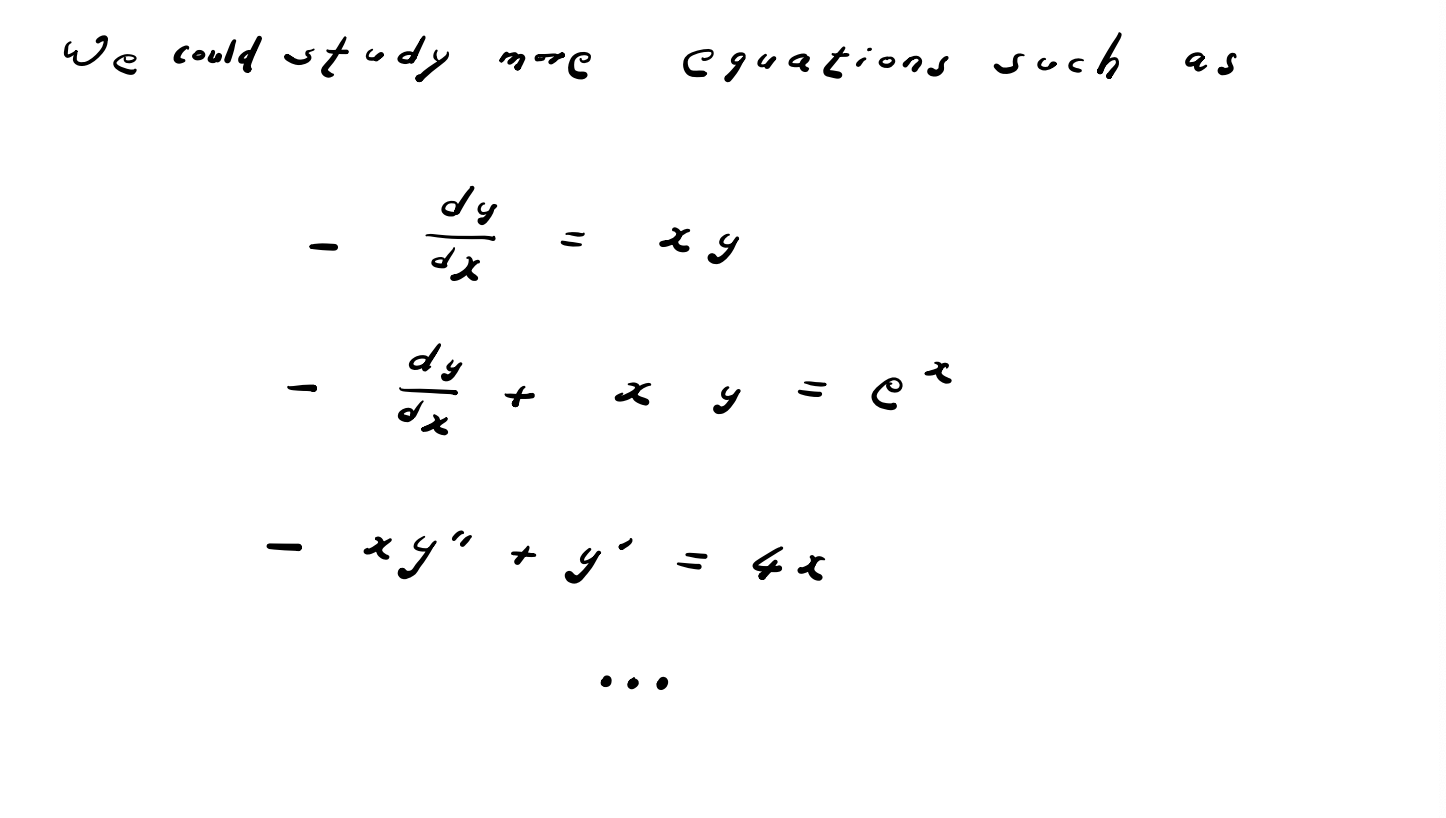 We could study more equations such as
- dy/dx = xy
- dy/dx + x y = e^x
- xy" + y' = 4x
...